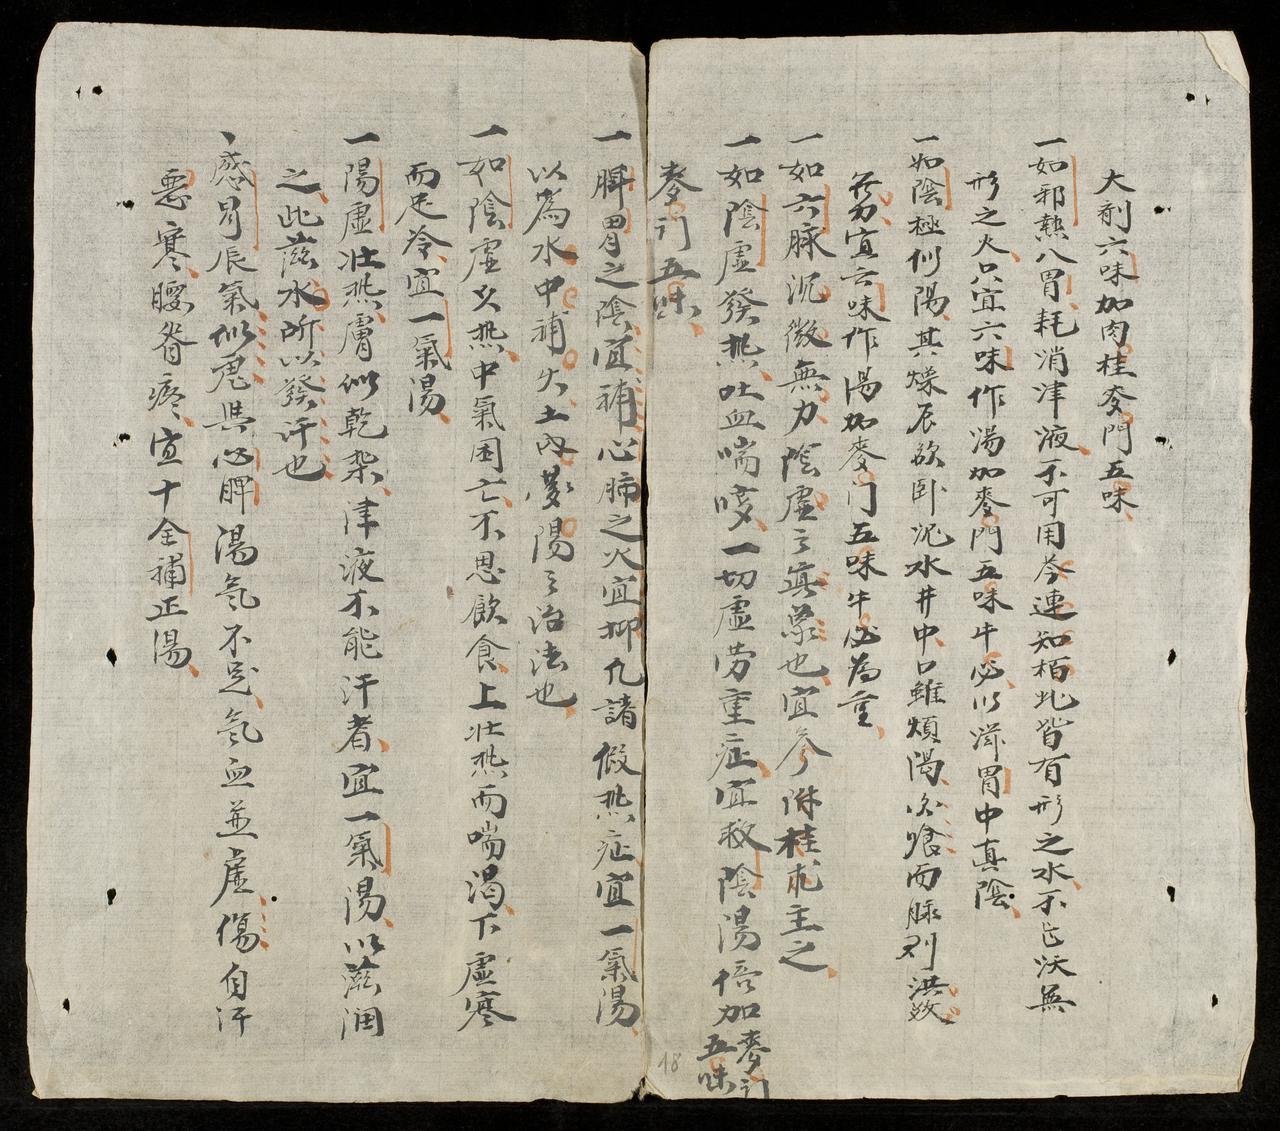 大剤六味加肉桂麥門五味
一如邪熱八胃耗消津液不可用芩連知栢此皆有形之水不能沃無
形之火只宜六味作湯加麥門五味牛必以滋胃中真陰
一如陰極似陽其燥辰欲卧泥水井中口雖煩渴欲飲而脉則洪数
無力宜六味作湯加麥门五味牛必為重
一如六脉沉微無力陰虚之真景也宜参附桂朮主之
一如陰虚發热吐血喘咳一切虚劳重症宜救陰陽倍加麥门五味
麥门五味
一脾胃之陰宜補心肺之火宜抑凢諸假热症宜一氣湯
以為水中補火土內藏陽之治法也
一如陰虚火热中氣困亡不思飲食上壮热而喘渴下虚寒
而足冷宜一氣湯
一陽虚壮热膚似乾柴津液不能汗者宜一氣湯以滋润
之此滋水所以發汗也
丶感冒辰氣似鬼與心脾湯氣不足気血並虚傷自汗
惡寒腰脊疼宜十全補正湯
18